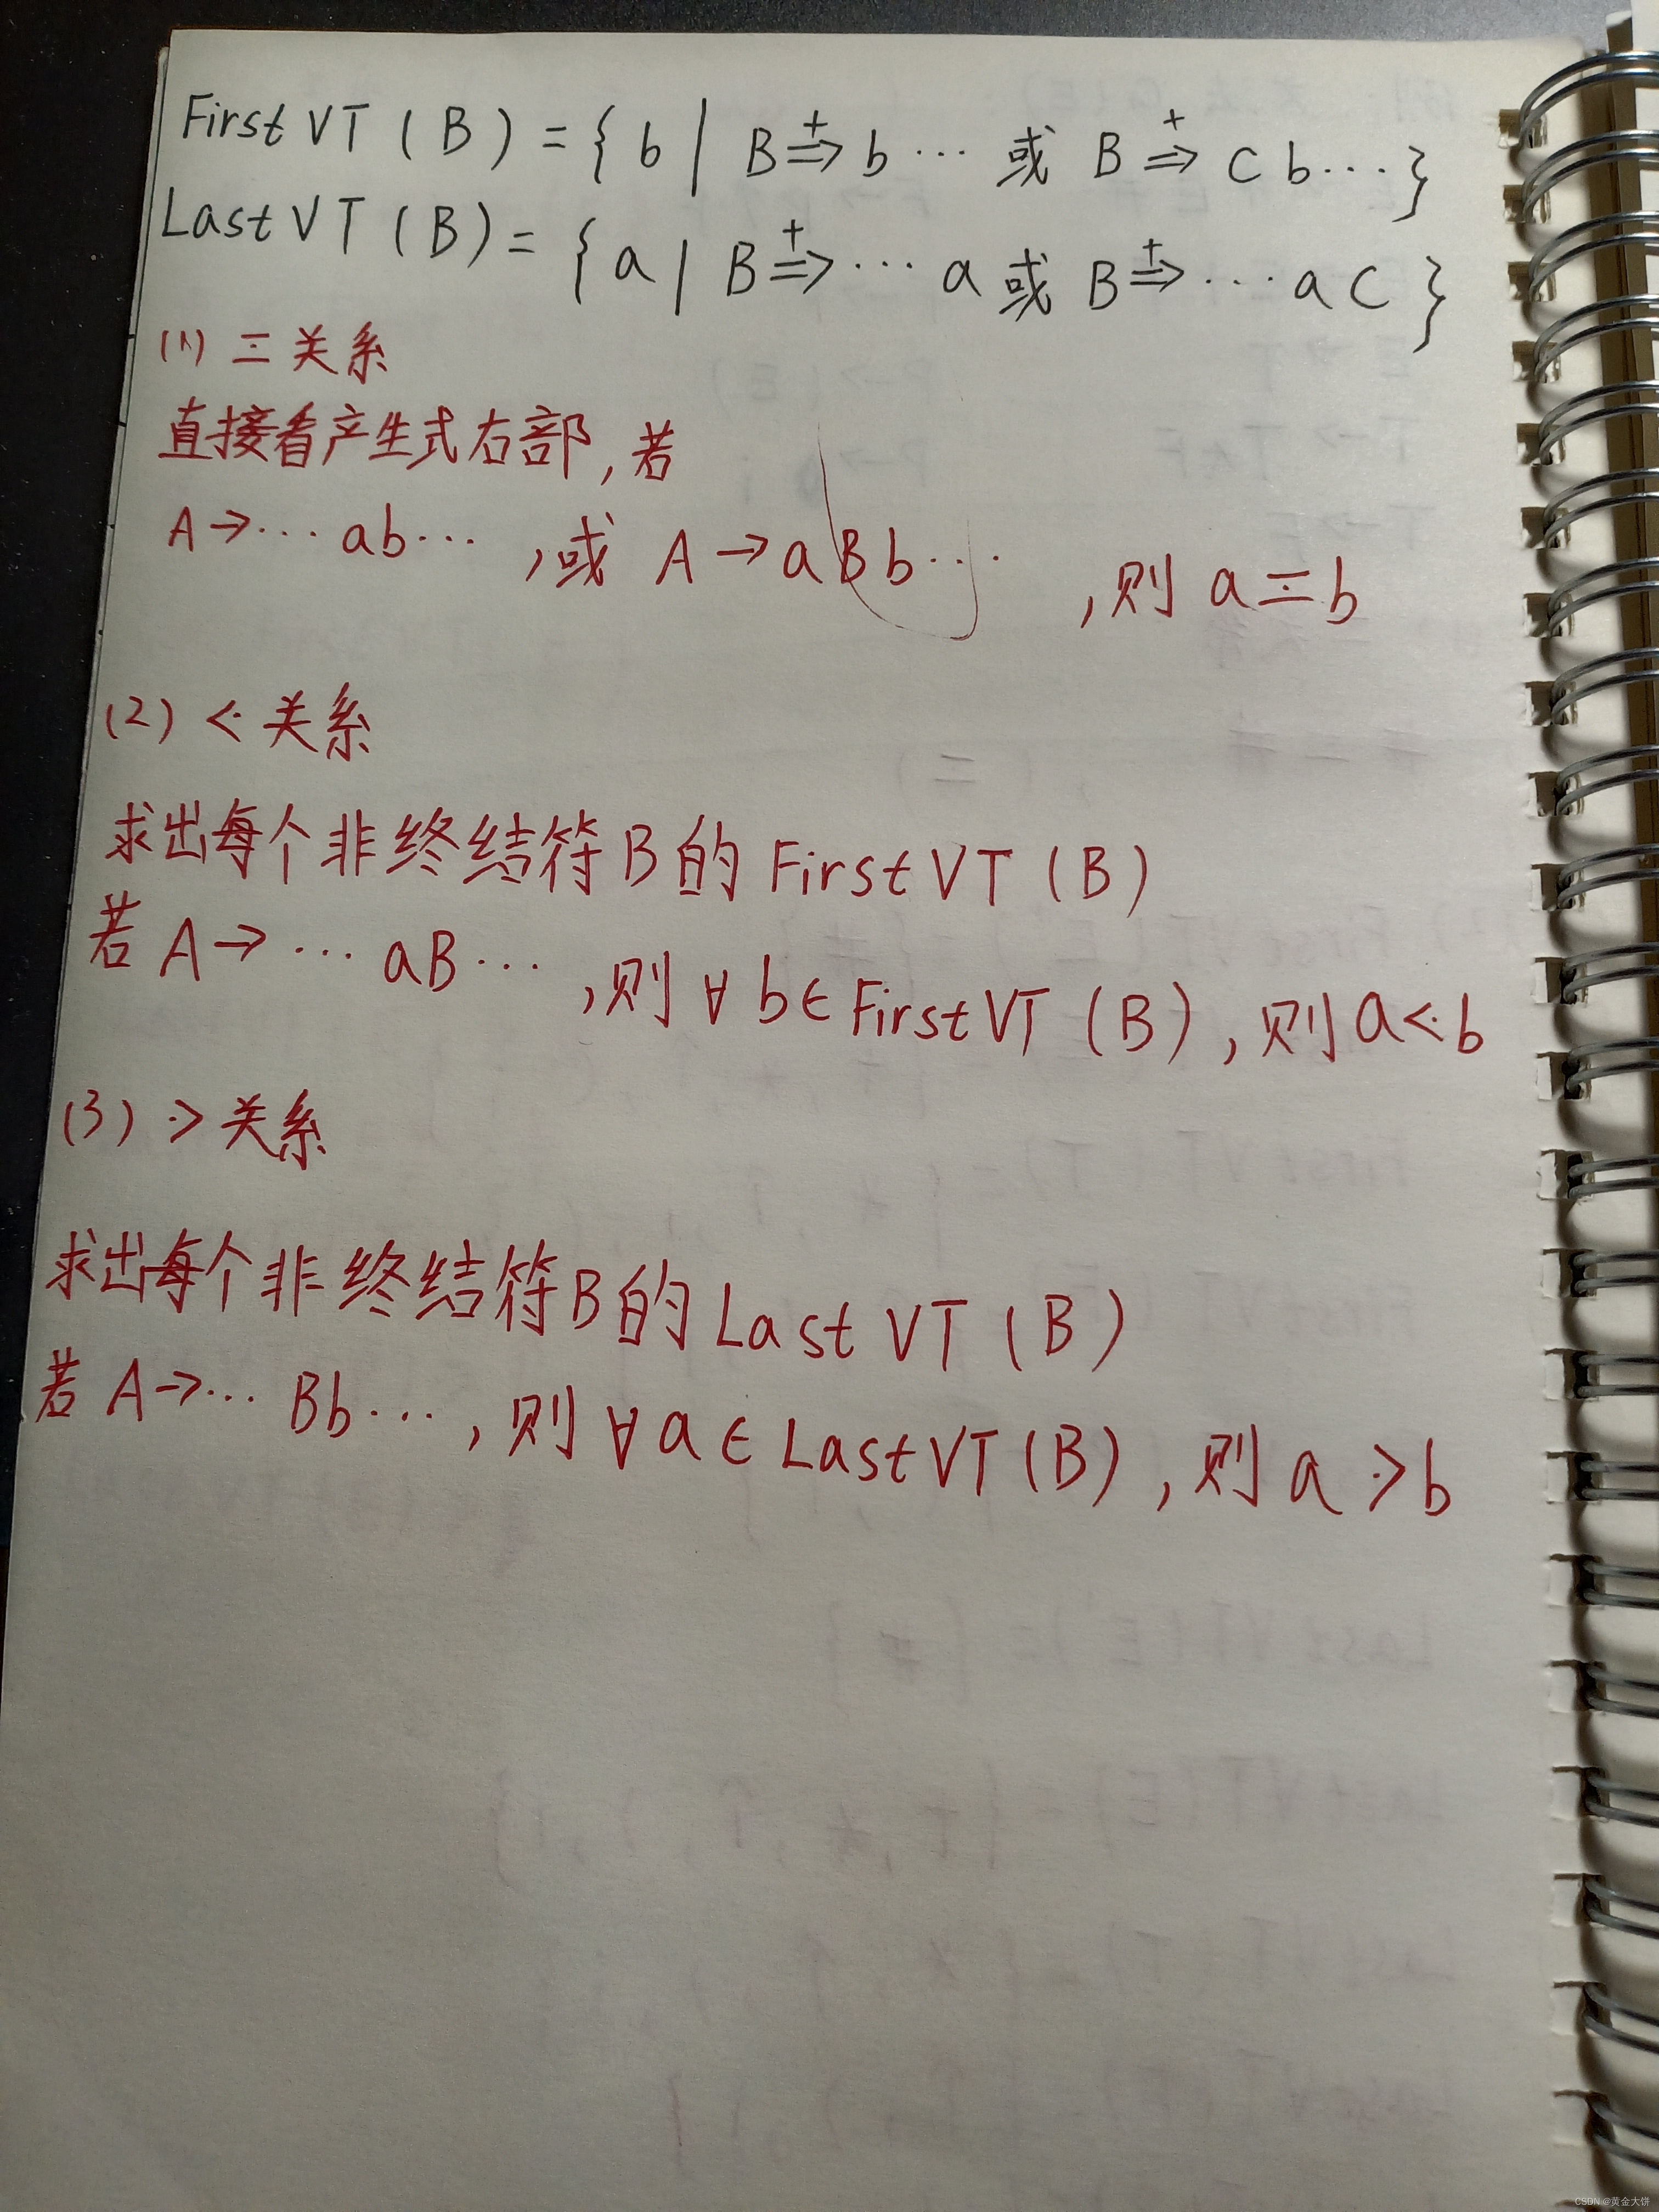 First VT ( B ) = { b | B ⇒⁺ b … 或 B ⇒⁺ C b … }
Last VT ( B ) = { a | B ⇒⁺ … a 或 B ⇒⁺ … a C }
(1) ≐ 关系
直接看产生式右部, 若
A → … ab … , 或 A → a B b … , 则 a ≐ b
(2) ⋖ 关系
求出每个非终结符B的 First VT ( B )
若 A → … aB … , 则 ∀ b ∈ First VT ( B ) , 则 a ⋖ b
(3) ⋗ 关系
求出每个非终结符B的 Last VT ( B )
若 A → … Bb … , 则 ∀ a ∈ Last VT ( B ) , 则 a ⋗ b
CSDN @黄金大饼